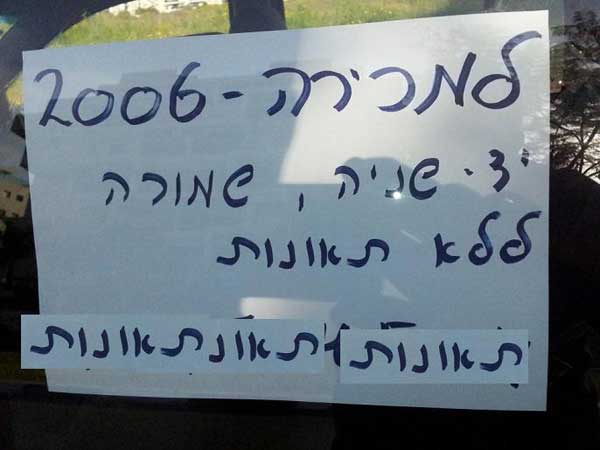 למכירה - 2006
יד - שניה , שמורה
ללא תאונות
תאונות תאונתאונות